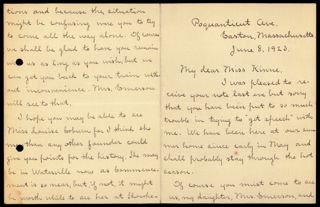 Poquanticut Ave.
Easton, Massachusetts
June 8, 1923.
My dear Miss Kinne,
I was pleased to re-
ceive your note last eve but sorry
that you have been put to so much
trouble in trying to "get speech" with
me. We have been here at our sum-
mer home since early in May and
shall probably stay through the hot
season.
Of course you must come to see
us, my daughter, Mrs. Emerson, and
tions and because the situation
might be confusing were you to try
to come all the way alone. Of course
we shall be glad to have you remain
with us as long as you wish, but we
can get you back to your train with-
out inconvenience. Mrs. Emerson
will see to that.
I hope you may be able to see
Miss Louise Coburn for I think she
more than any other founder could
give you points for the history. She may
be in Waterville now as commence-
ment is so near, but if not, it might
be worth while to see her at Skowhe-